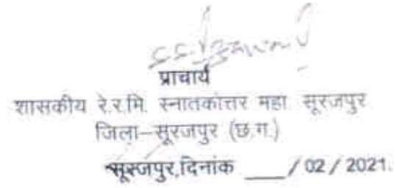 प्राचार्य
शासकीय रे.र.मि. स्नातकोत्तर महा. सूरजपुर
जिला-सूरजपुर (छ.ग.)
सूरजपुर,दिनांक ___/ 02 / 2021.